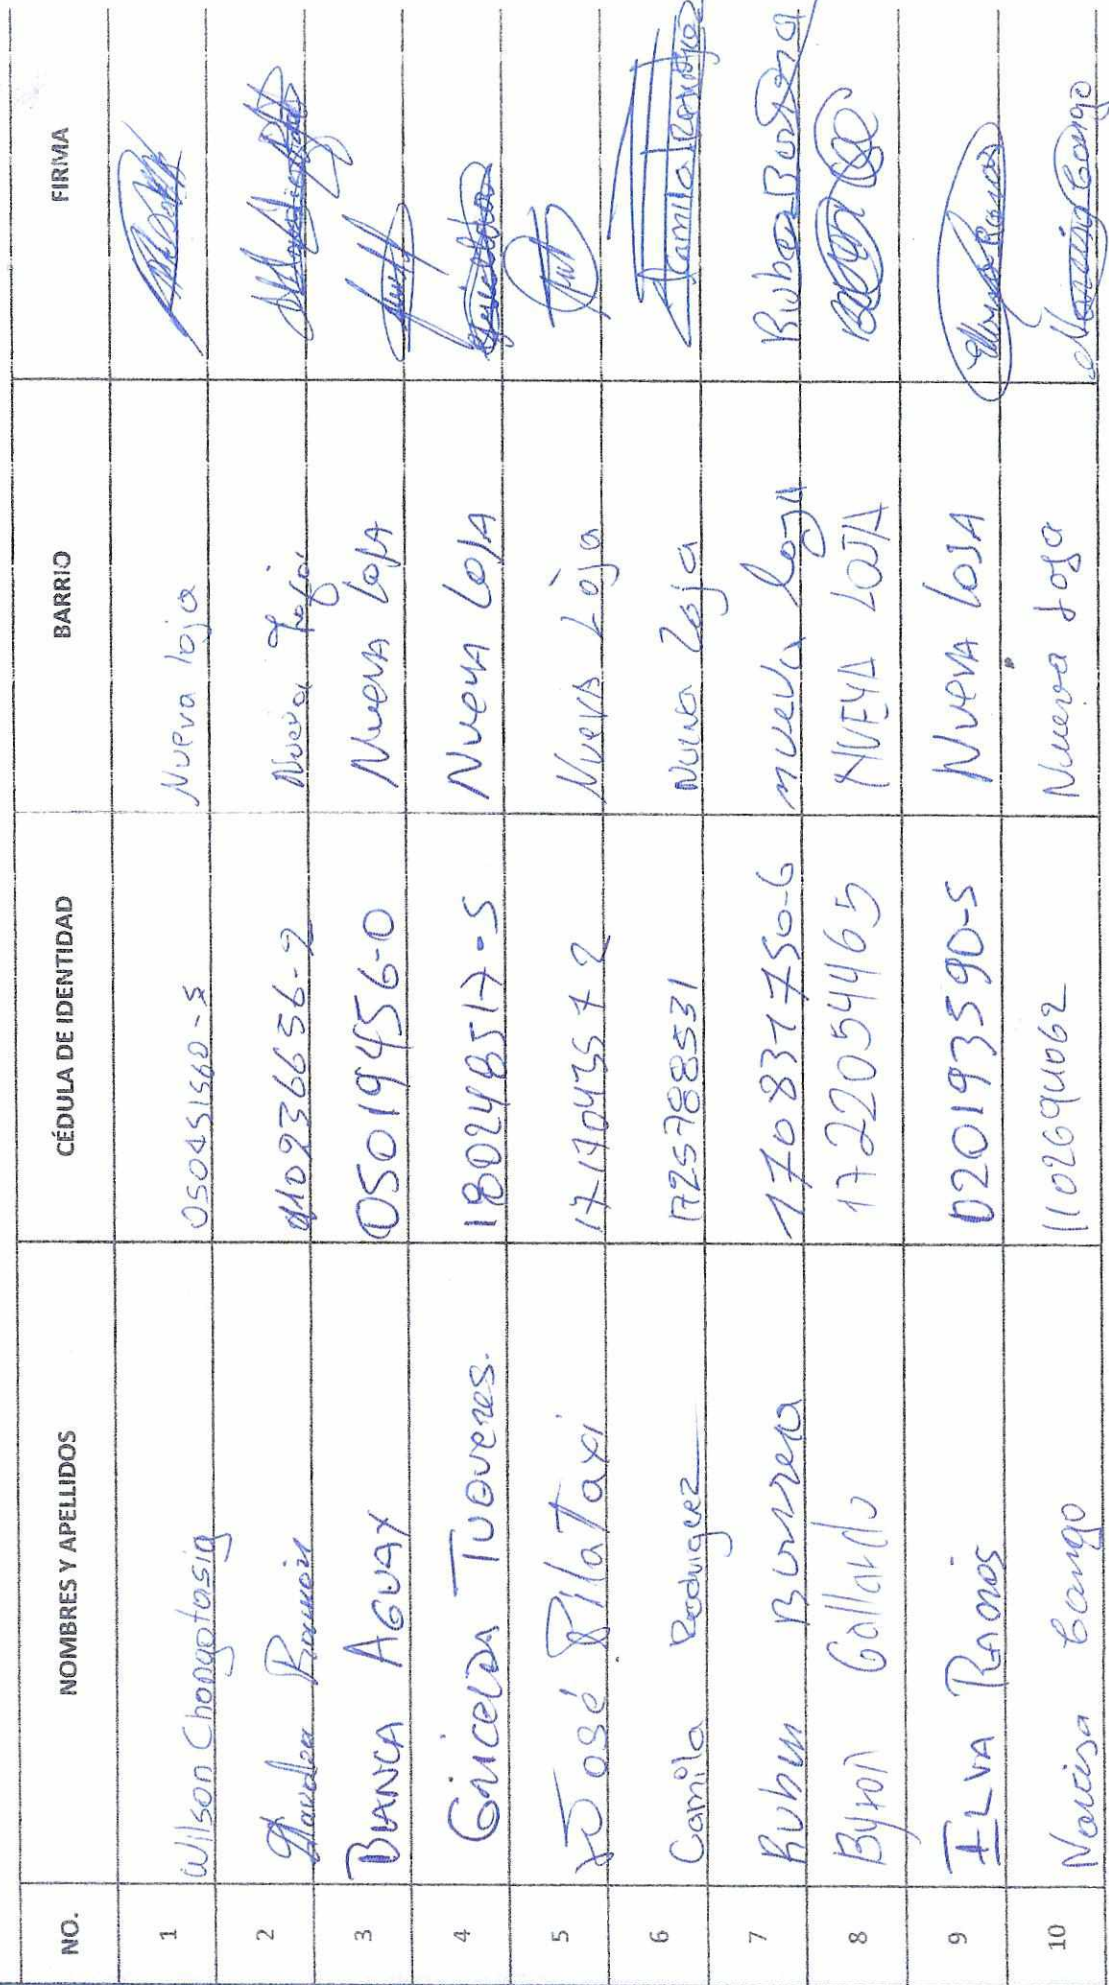 NO. NOMBRES Y APELLIDOS CÉDULA DE IDENTIDAD BARRIO FIRMA
1 Wilson Chongotasig 050451560-5 Nueva loja
2 Ramón Nueva Loja
3 BLANCA AGUAY 050194956-0 Nueva Loja
4 Gricelda TUQUERES. 180248517-5 Nueva LOJA
5 José PilaTaxi 1717043572 Nueva Loja
6 Camila Rodriguez 1725788531 Nueva Loja Camila Rodriguez
7 Ruben Burrera 170831750-6 nueva loja
8 Byron Gallardo 1722054465 NUEVA LOJA
9 ELVA RAMOS 020193590-5 NUEVA LOJA
10 Narcisa Cango 1102694062 Nueva Loja Narcisa Cango